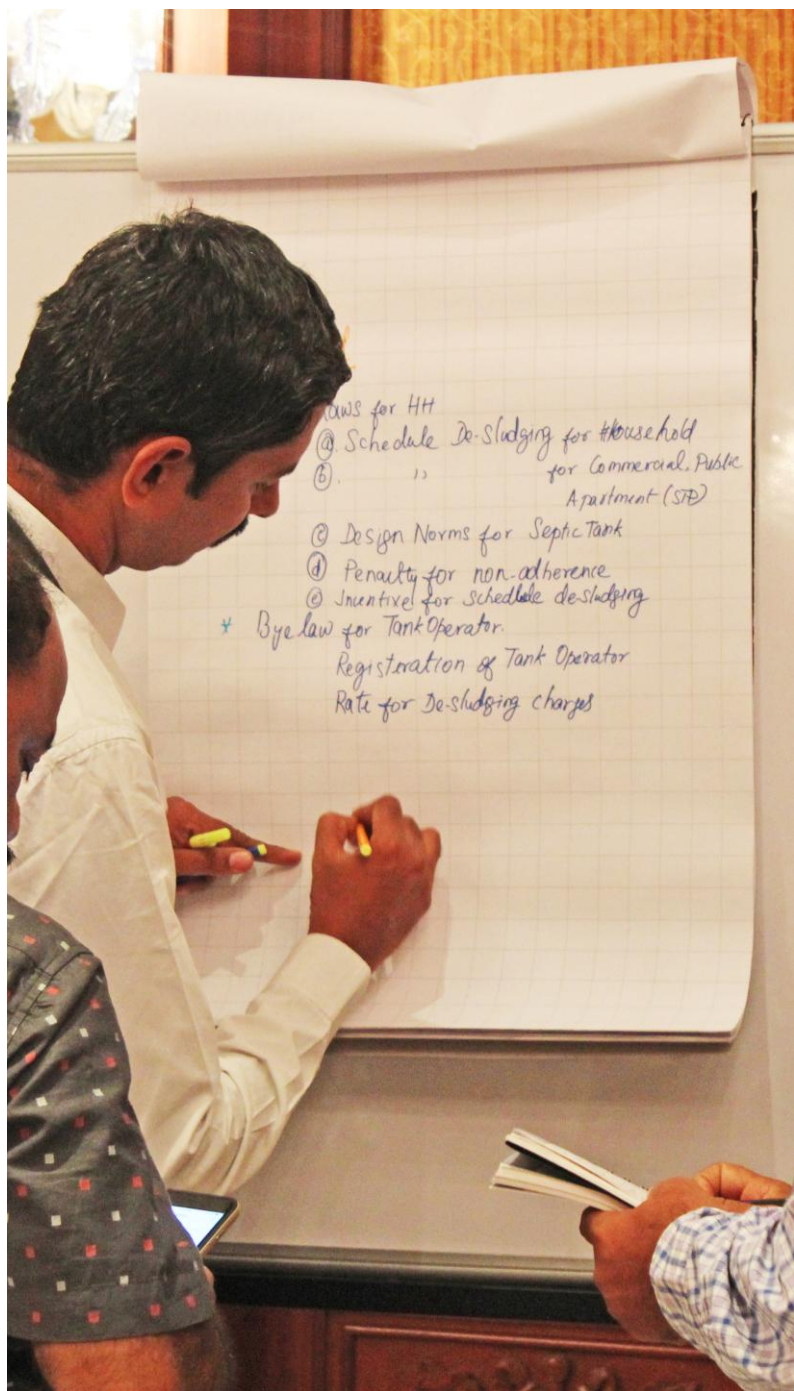 laws for HH
ⓐ. Schedule De-Sludging for Household
ⓑ. ,, for Commercial, Public
Apartment (STP)
ⓒ Design Norms for Septic Tank
ⓓ Penaulty for non-adherence
ⓔ Incentive for schedule de-sludging
* Bye law for Tank Operator.
Registeration of Tank Operator
Rate for De-sludging charges